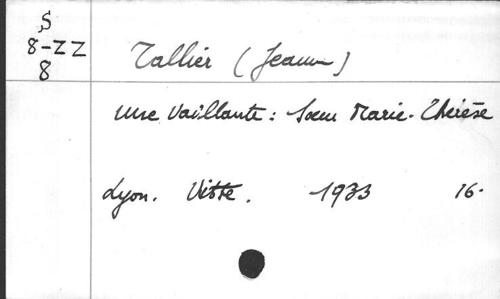 S
8-ZZ
8
Tallier (Jeanne)
Une Vaillante : Sœur Marie-Thérèse
Lyon. Vitte. 1933 16-